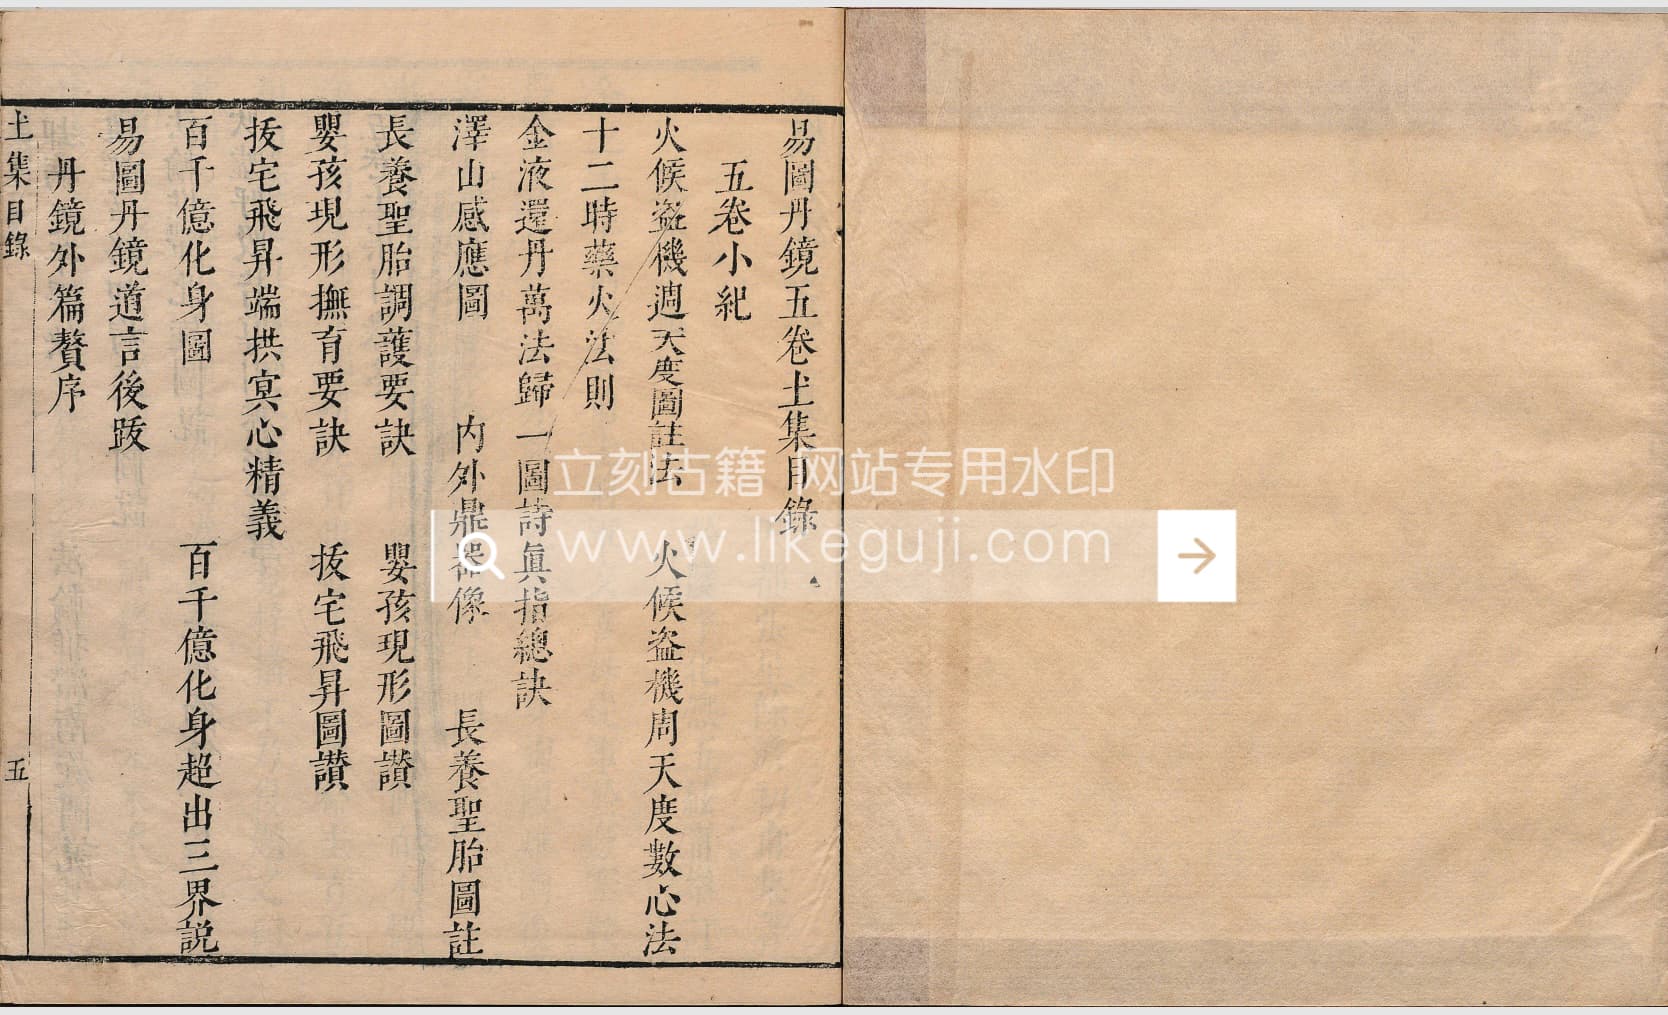 易圖丹鏡五卷土集目錄
五卷小紀
火候盗機週天度圖註法 火候盗機周天度數心法
十二時藥火法則
金液還丹萬法歸一圖詩眞指總訣
澤山感應圖 内外鼎器像 長養聖胎圖註
長養聖胎調護要訣 嬰孩現形圖讃
嬰孩現形撫育要訣 拔宅飛昇圖讃
拔宅飛昇端拱冥心精義
百千億化身圖 百千億化身超出三界説
易圖丹鏡道言後跋
丹鏡外篇贅序
土集目錄 五
立刻古籍 网站专用水印
www.likeguji.com